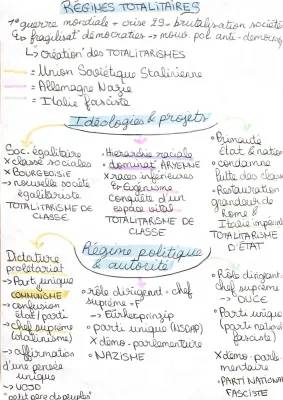 RÉGIMES TOTALITAIRES
1e guerre mondiale + crise 29 = brutalisation société
↳ fragilisat° démocraties → mouv. pol. anti-démocrq
↳ Création des TOTALITARISMES
= Union Soviétique Stalinienne
= Allemagne Nazie
= Italie fasciste
Idéologies & projets
Soc. égalitaire
X classe sociales
X BOURGEOISIE
→ nouvelle société
égalitariste
TOTALITARISME DE
CLASSE
Hiérarchie raciale
o dominat° ARYENNE
X races inférieures
Eugénisme
conquête d'un
espace vital
TOTALITARISME DE
CLASSE
o Primauté
État & nation
o condamne
lutte des classes
o Restauration
grandeur de
Rome &
Italie impériale
TOTALITARISME
D'ÉTAT
Régime politique
& autorité
Dictature
prolétariat
→ Parti unique
COMMUNISME
→ confusion
état/parti
→ Chef suprême
(stalinisme)
→ affirmation
d'une pensée
unique
→ VOJD
"petit père des peuples"
o rôle dirigent - chef
suprême -
→ Fürherprinzip
o parti unique (NSDAP)
X démo-parlementaire
o NAZISME
o Rôle dirigent -
chef suprême
→ DUCE
o Parti unique
parti national
fasciste)
X démo-parle-
mentaire
o PARTI NATIONAL
FASCISTE